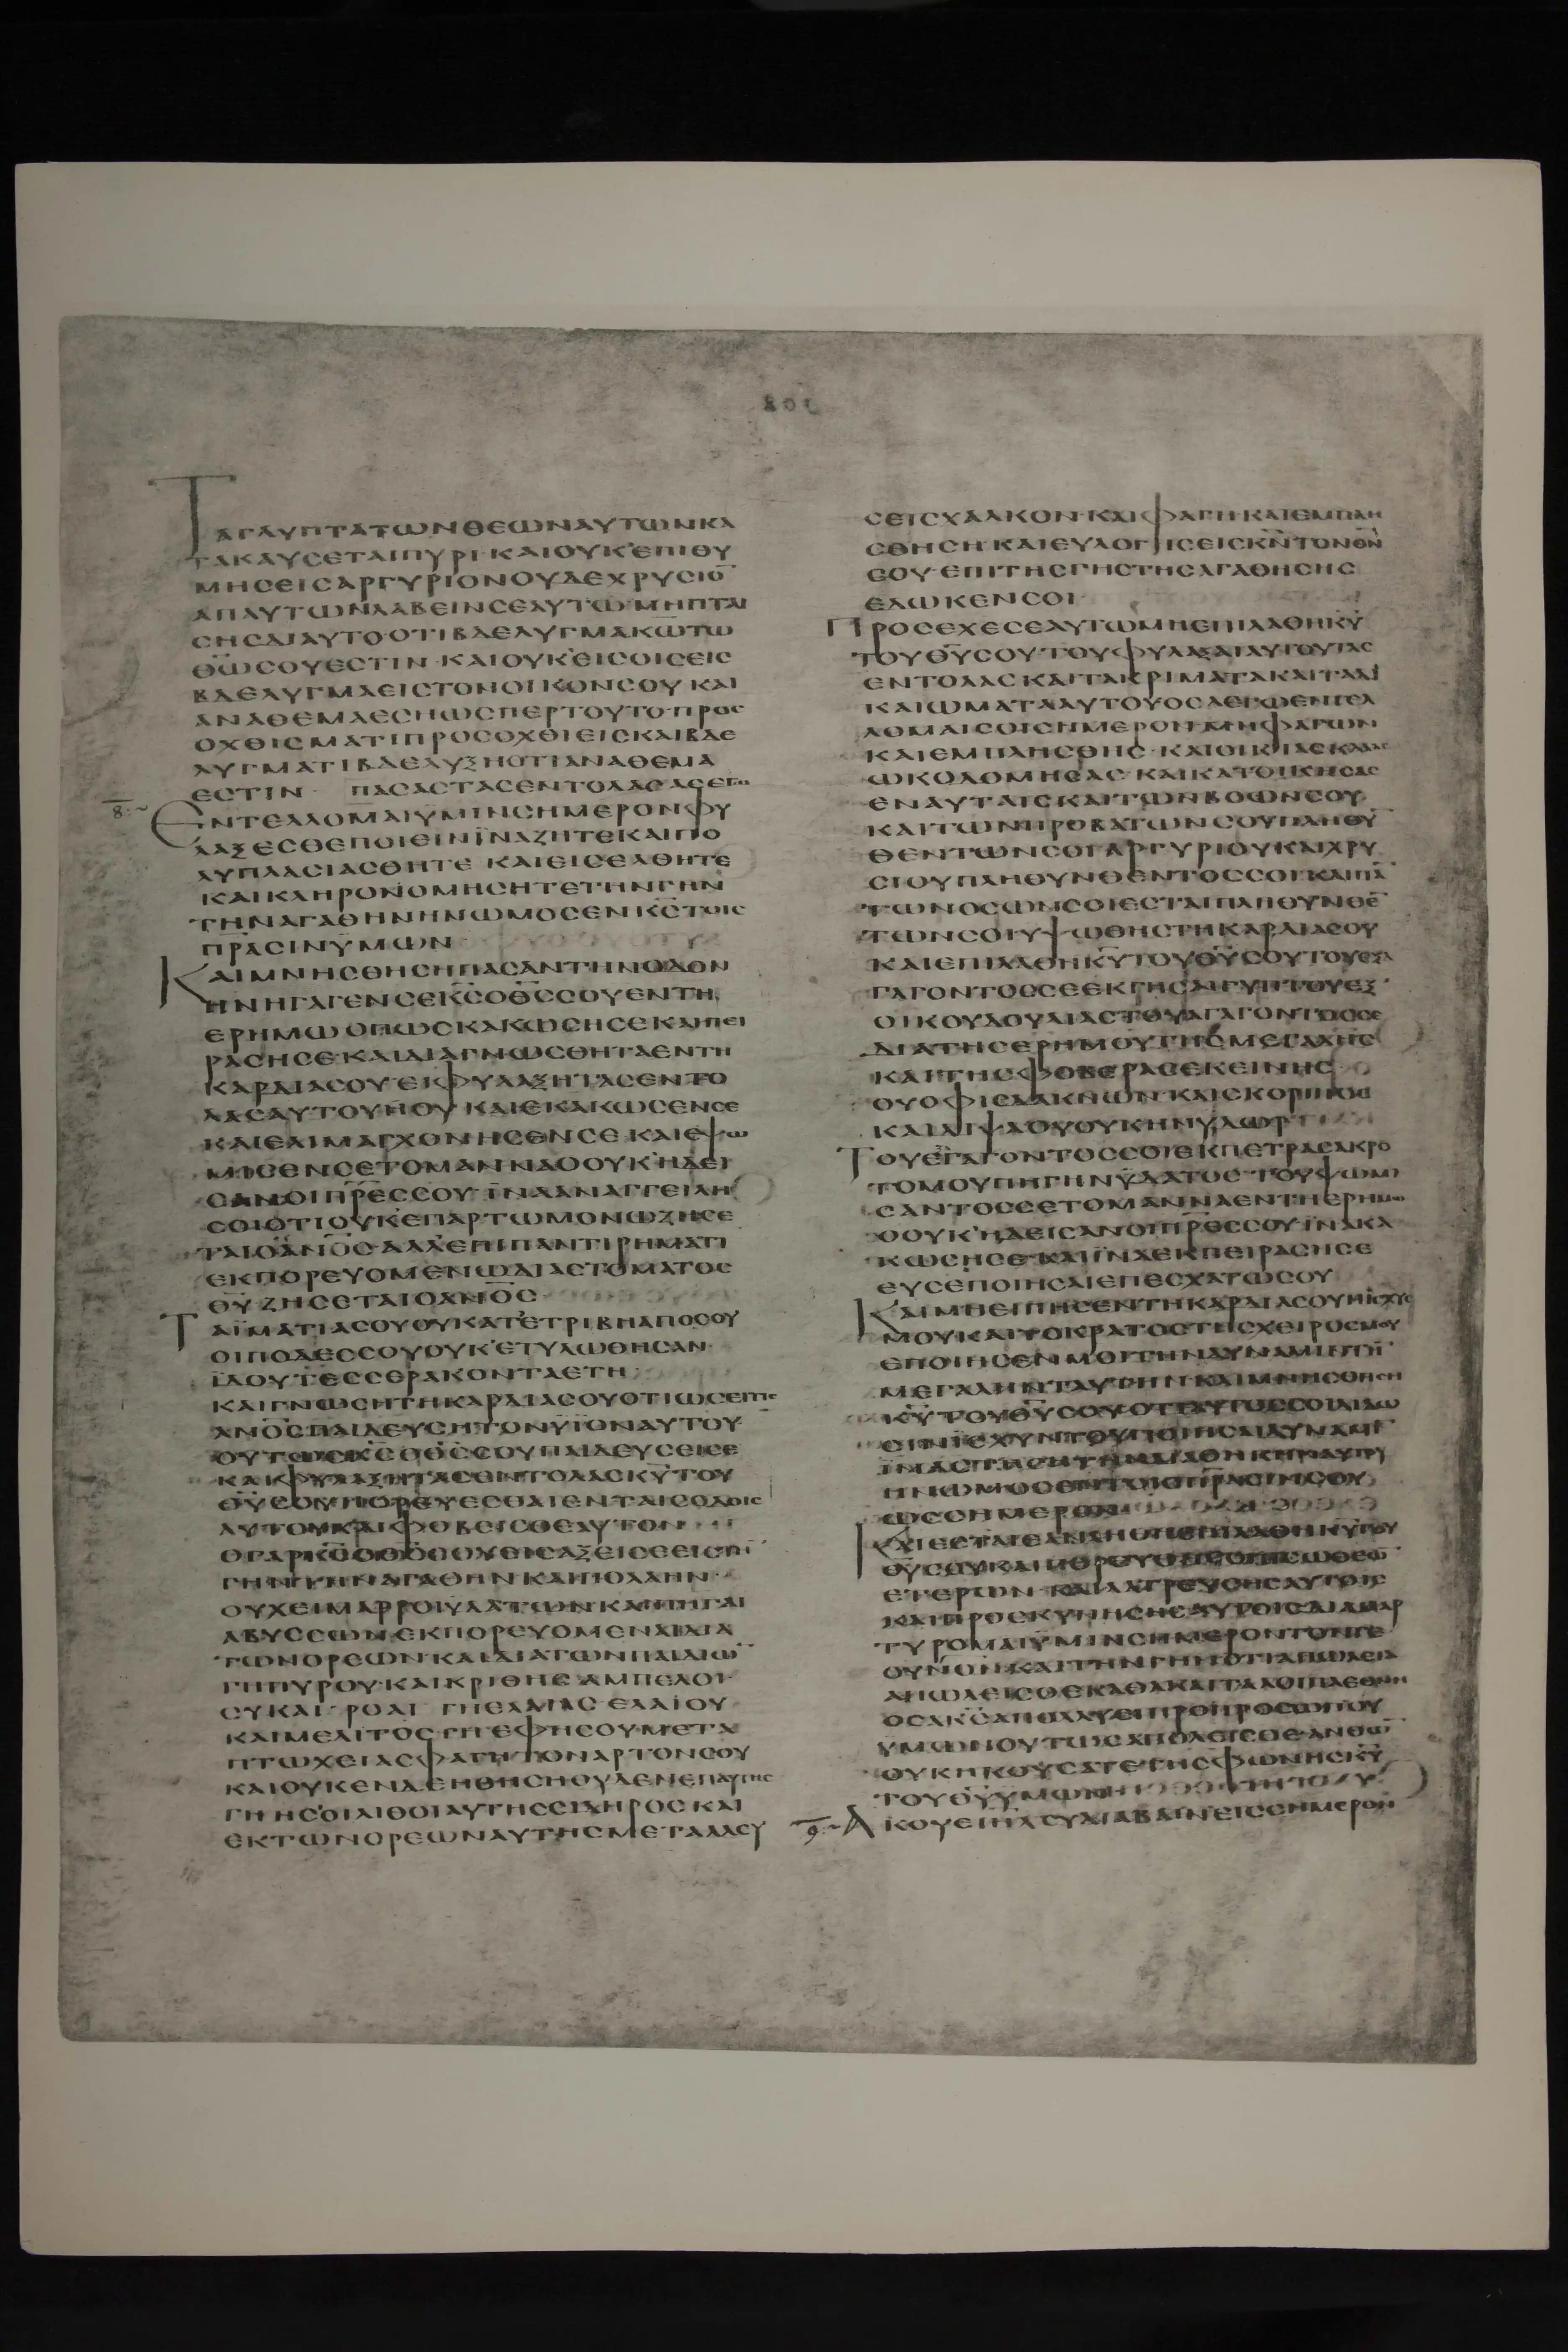 ΤΑΓΛΥΠΤΑΤΩΝΘΕΩΝΑΥΤΩΝΚΑ
ΤΑΚΑΥϹΕΤΑΙΠΥΡΙ·ΚΑΙΟΥΚΕΠΙΘΥ
ΜΗϹΕΙϹΑΡΓΥΡΙΟΝΟΥΔΕΧΡΥϹΙΟ̅
ΑΠΑΥΤΩΝΛΑΒΕΙΝϹΕΑΥΤΩΜΗΠΤΑΙ
ϹΗϹΔΙΑΥΤΟΟΤΙΒΔΕΛΥΓΜΑΚΩ̅ΤΩ
ΘΩ̅ϹΟΥΕϹΤΙΝ·ΚΑΙΟΥΚΕΙϹΟΙϹΕΙϹ
ΒΔΕΛΥΓΜΑΕΙϹΤΟΝΟΙΚΟΝϹΟΥΚΑΙ
ΑΝΑΘΕΜΑΕϹΗΩϹΠΕΡΤΟΥΤΟ·ΠΡΟϹ
ΟΧΘΙϹΜΑΤΙΠΡΟϹΟΧΘΙΕΙϹΚΑΙΒΔΕ
ΛΥΓΜΑΤΙΒΔΕΛΥΞΗΟΤΙΑΝΑΘΕΜΑ
ΕϹΤΙΝ· ΠΑϹΑϹΤΑϹΕΝΤΟΛΑϹΑϹΕΓΩ
8 ΕΝΤΕΛΛΟΜΑΙΫΜΙΝϹΗΜΕΡΟΝΦΥ
ΛΑΞΕϹΘΕΠΟΙΕΙΝΪΝΑΖΗΤΕΚΑΙΠΟ
ΛΥΠΛΑϹΙΑϹΘΗΤΕ ΚΑΙΕΙϹΕΛΘΗΤΕ
ΚΑΙΚΛΗΡΟΝΟΜΗϹΗΤΕΤΗΝΓΗΝ
ΤΗΝΑΓΑΘΗΝΗΝΩΜΟϹΕΝΚ̅Ϲ̅ΤΟΙϹ
ΠΡΑϹΙΝΫΜΩΝ
ΚΑΙΜΝΗϹΘΗϹΗΠΑϹΑΝΤΗΝΟΔΟΝ
ΗΝΗΓΑΓΕΝϹΕΚ̅Ϲ̅ΟΘ̅Ϲ̅ϹΟΥΕΝΤΗ
ΕΡΗΜΩΟΠΩϹΚΑΚΩϹΗϹΕΚΑΙΠΕΙ
ΡΑϹΗϹΕ·ΚΑΙΔΙΑΓΝΩϹΘΗΤΑΕΝΤΗ
ΚΑΡΔΙΑϹΟΥ·ΕΙΦΥΛΑΞΗΤΑϹΕΝΤΟ
ΛΑϹΑΥΤΟΥΗΟΥ ΚΑΙΕΚΑΚΩϹΕΝϹΕ
ΚΑΙΕΛΙΜΑΓΧΟΝΗϹΕΝϹΕ·ΚΑΙΕΨΩ
ΜΙϹΕΝϹΕΤΟΜΑΝΝΑΟΟΥΚΗΔΕΙ
ϹΑΝΟΙΠΡ̅Ε̅Ϲ̅ϹΟΥ·ΪΝΑΑΝΑΓΓΕΙΛΗ
ϹΟΙΟΤΙΟΥΚΕΠΑΡΤΩΜΟΝΩΖΗϹΕ
ΤΑΙΟΑ̅Ν̅Ο̅Ϲ̅·ΑΛΛΕΠΙΠΑΝΤΙΡΗΜΑΤΙ
ΕΚΠΟΡΕΥΟΜΕΝΩΔΙΑϹΤΟΜΑΤΟϹ
Θ̅Υ̅ΖΗϹΕΤΑΙΟΑΝ̅Ο̅Ϲ̅
ΤΑΪΜΑΤΙΑϹΟΥΟΥΚΑΤΕΤΡΙΒΗΑΠΟϹΟΥ
ΟΙΠΟΔΕϹϹΟΥΟΥΚΕΤΥΛΩΘΗϹΑΝ·
ΪΔΟΥΤΕϹϹΕΡΑΚΟΝΤΑΕΤΗ
ΚΑΙΓΝΩϹΗΤΗΚΑΡΔΙΑϹΟΥΟΤΙΩϹΕΙΤΙϹ
ΑΝ̅Ο̅Ϲ̅ΠΑΙΔΕΥϹΗΤΟΝΥΪΟΝΑΥΤΟΥ·
ΟΥΤΩϹΚ̅Ϲ̅ΟΘ̅Ϲ̅ϹΟΥΠΑΙΔΕΥϹΕΙϹΕ
ΚΑΙΦΥΛΑΞΗΤΑϹΕΝΤΟΛΑϹΚ̅Υ̅ΤΟΥ
Θ̅Υ̅ϹΟΥΠΟΡΕΥΕϹΘΑΙΕΝΤΑΙϹΟΔΟΙϹ
ΑΥΤΟΥΚΑΙΦΟΒΕΙϹΘΕΑΥΤΟΝ
ΟΥΧΕΙΜΑΡΡΟΙΫΔΑΤΩΝΚΑΙΠΗΓΑΙ
ΑΒΥϹϹΩΝΕΚΠΟΡΕΥΟΜΕΝΑΙΔΙΑ
ΓΗΠΥΡΟΥ·ΚΑΙΚΡΙΘΗϹ·ΑΜΠΕΛΟΙ·
ϹΥΚΑΙ·ΡΟΑΙ· ΓΗΕΛΑΙΑϹ ΕΛΑΙΟΥ
ΚΑΙΜΕΛΙΤΟϹ·ΓΗΕΦΗϹΟΥΜΕΤΑ
ΠΤΩΧΕΙΑϹΦΑΓΗΤΟΝΑΡΤΟΝϹΟΥ
ΚΑΙΟΥΚΕΝΔΕΗΘΗϹΗΟΥΔΕΝΕΠΑΥΤΗϹ
ΓΗΗϹΟΙΛΙΘΟΙΑΥΤΗϹϹΙΔΗΡΟϹΚΑΙ
ΕΚΤΩΝΟΡΕΩΝΑΥΤΗϹΜΕΤΑΛΛΕΥ
ϹΕΙϹΧΑΛΚΟΝ·ΚΑΙΦΑΓΗΚΑΙΕΜΠΛΗ
ϹΘΗϹΗΚΑΙΕΥΛΟΓΙϹΕΙϹΚ̅Ν̅ΤΟΝΘ̅Ν̅
ϹΟΥ·ΕΠΙΤΗϹΓΗϹΤΗϹΑΓΑΘΗϹΗϹ
ΕΔΩΚΕΝϹΟΙ
ΠΡΟϹΕΧΕϹΕΑΥΤΩΜΗΕΠΙΛΑΘΗΚ̅Υ̅
ΤΟΥΘ̅Υ̅ϹΟΥ·ΤΟΥΦΥΛΑΞΑΙΑΥΤΟΥΤΑϹ
ΕΝΤΟΛΑϹΚΑΙΤΑΚΡΙΜΑΤΑΚΑΙΤΑΔΙ
ΚΑΙΩΜΑΤΑΑΥΤΟΥΟϹΑΕΓΩΕΝΤΕΛ
ΛΟΜΑΙϹΟΙϹΗΜΕΡΟΝ·ΜΗΦΑΓΩΝ
ΚΑΙΕΜΠΛΗϹΘΗϹ·ΚΑΙΟΙΚΙΑϹΚΑΛΑϹ
ΩΚΟΔΟΜΗϹΑϹ·ΚΑΙΚΑΤΟΙΚΗϹΑϹ
ΕΝΑΥΤΑΙϹΚΑΙΤΩΝΒΟΩΝϹΟΥ
ΚΑΙΤΩΝΠΡΟΒΑΤΩΝϹΟΥΠΛΗΘΥ̅
ΘΕΝΤΩΝϹΟΙΑΡΓΥΡΙΟΥΚΑΙΧΡΥ
ϹΙΟΥΠΛΗΘΥΝΘΕΝΤΟϹϹΟΙ·ΚΑΙΠΑ̅
ΤΩΝΟϹΩΝϹΟΙΕϹΤΑΙΠΛΗΘΥΝΘΕ̅
ΤΩΝϹΟΙΥΨΩΘΗϹΤΗΚΑΡΔΙΑϹΟΥ
ΚΑΙΕΠΙΛΑΘΗΚ̅Υ̅ΤΟΥΘ̅Υ̅ϹΟΥΤΟΥΕΞΑ
ΓΑΓΟΝΤΟϹϹΕΕΚΓΗϹΑΙΓΥΠΤΟΥΕΞ
ΟΙΚΟΥΔΟΥΛΙΑϹΤΟΥΑΓΑΓΟΝΤΟϹϹΕ
ΔΙΑΤΗϹΕΡΗΜΟΥΤΗϹΜΕΓΑΛΗϹ
ΚΑΙΤΗϹΦΟΒΕΡΑϹΕΚΕΙΝΗϹ
ΟΥΟΦΙϹΔΑΚΝΩΝ·ΚΑΙϹΚΟΡΠΙΟϹ
ΚΑΙΔΙΨΑΟΥΟΥΚΗΝΫΔΩΡ
ΤΟΥΕΞΑΓΑΓΟΝΤΟϹϹΟΙΕΚΠΕΤΡΑϹΑΚΡΟ
ΤΟΜΟΥΠΗΓΗΝΫΔΑΤΟϹ·ΤΟΥΨΩΜΙ
ϹΑΝΤΟϹϹΕΤΟΜΑΝΝΑΕΝΤΗΕΡΗΜΩ
ΟΟΥΚΗΔΕΙϹΑΝΟΙΠΡ̅Ε̅Ϲ̅ϹΟΥ·ΪΝΑΚΑ
ΚΩϹΗϹΕ·ΚΑΙΪΝΑΕΚΠΕΙΡΑϹΗϹΕ
ΕΥϹΕΠΟΙΗϹΑΙΕΠΕϹΧΑΤΩϹΟΥ
ΚΑΙΜΗΕΙΠΗϹΕΝΤΗΚΑΡΔΙΑϹΟΥΗΪϹΧΥϹ
ΜΟΥΚΑΙΤΟΚΡΑΤΟϹΤΗϹΧΕΙΡΟϹΜΟΥ
ΜΕΓΑΛΗΝΤΑΥΤΗΝ·ΚΑΙΜΝΗϹΘΗϹΗ
ΗΝΩΜΟϹΕΝΤΟΙϹΠΑΤΡΑϹΙΝϹΟΥ
ΕΤΕΡΩΝ·ΚΑΙΛΑΤΡΕΥϹΗϹΑΥΤΟΙϹ
ΚΑΙΠΡΟϹΚΥΝΗϹΗϹΑΥΤΟΙϹΔΙΑΜΑΡ
ΤΥΡΟΜΑΙΫΜΙΝϹΗΜΕΡΟΝΤΟΝΤΕ
ΟΥΝ̅Ο̅Ν̅·ΚΑΙΤΗΝΓΗΝΟΤΙΑΠΩΛΕΙΑ
ΟΥΚΗΚΟΥϹΑΤΕΤΗϹΦΩΝΗϹΚ̅Υ̅
ΤΟΥΘ̅Υ̅ΫΜΩΝ
9 ΑΚΟΥΕΙ̅Η̅Λ̅ϹΥΔΙΑΒΑΙΝΕΙϹϹΗΜΕΡΟΝ